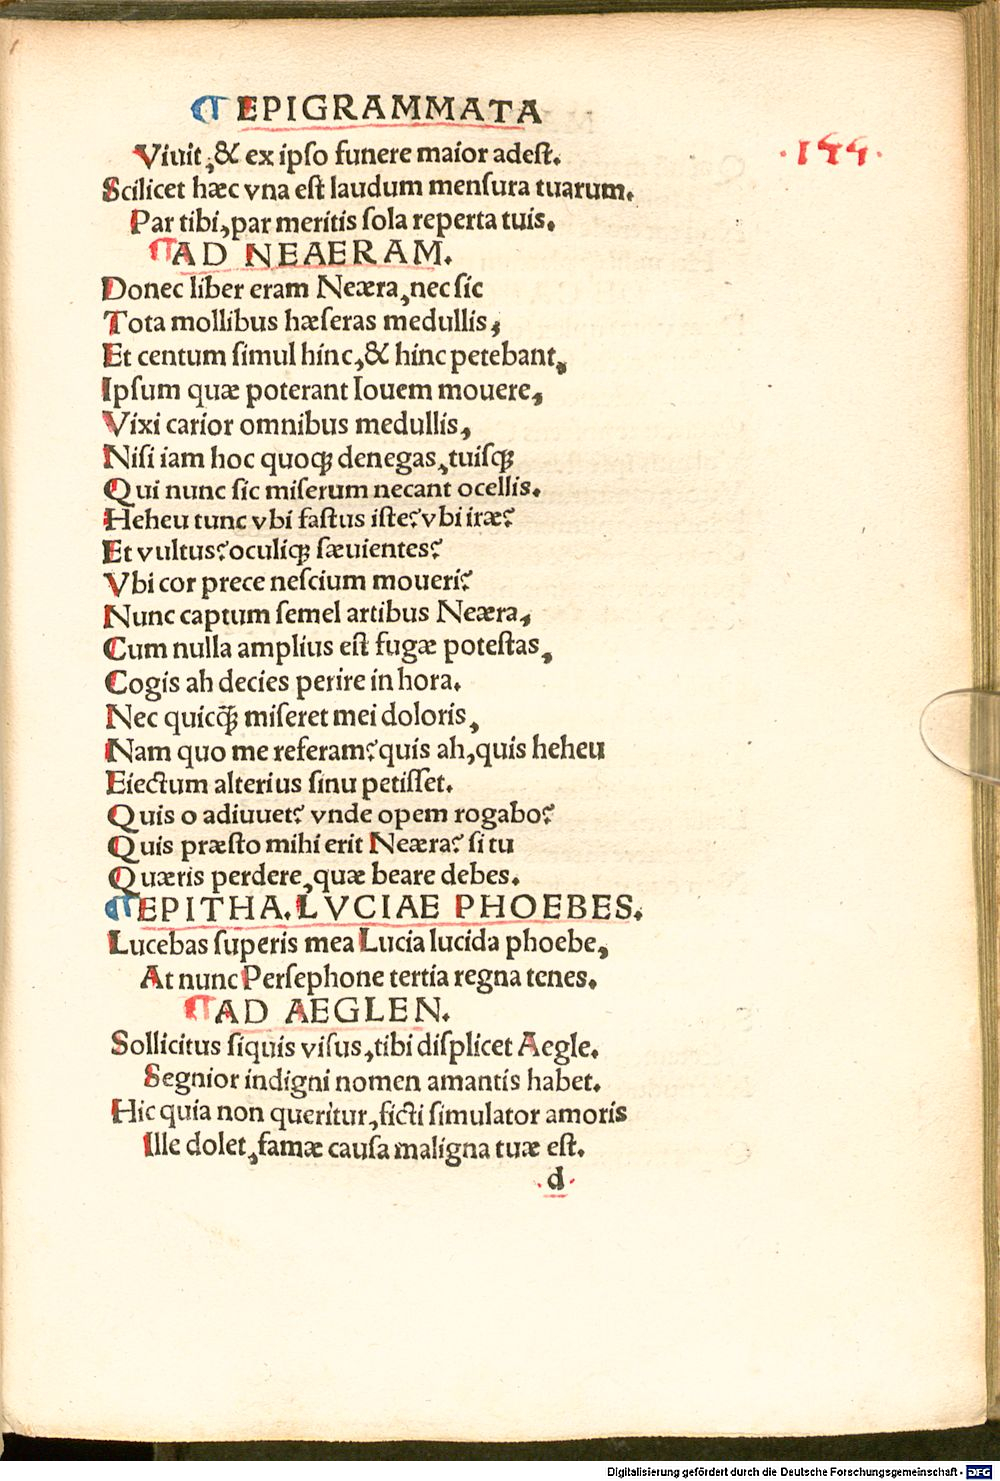 ¶ EPIGRAMMATA
Viuit,& ex ipso funere maior adest.
·144·
Scilicet hæc vna est laudum mensura tuarum.
Par tibi,par meritis sola reperta tuis.
¶AD NEAERAM.
Donec liber eram Neæra,nec sic
Tota mollibus hæseras medullis,
Et centum simul hinc,& hinc petebant,
Ipsum quæ poterant Iouem mouere,
Vixi carior omnibus medullis,
Nisi iam hoc quoqꝫ denegas,tuisqꝫ
Qui nunc sic miserum necant ocellis.
Heheu tunc vbi fastus iste? vbi iræ?
Et vultus? oculiqꝫ sæuientes?
Vbi cor prece nescium moueri?
Nunc captum semel artibus Neæra,
Cum nulla amplius est fugæ potestas,
Cogis ah decies perire in hora.
Nec quicq̃ꝫ miseret mei doloris,
Nam quo me referam? quis ah,quis heheu
Eiectum alterius sinu petisset.
Quis o adiuuet? vnde opem rogabo?
Quis præsto mihi erit Neæra? si tu
Quæris perdere,quæ beare debes.
¶EPITHA.LVCIAE PHOEBES.
Lucebas superis mea Lucia lucida phoebe,
At nunc Persephone tertia regna tenes.
¶AD AEGLEN.
Sollicitus siquis visus,tibi displicet Aegle.
Segnior indigni nomen amantis habet.
Hic quia non queritur,ficti simulator amoris
Ille dolet,famæ causa maligna tuæ est.
.d.
Digitalisierung gefördert durch die Deutsche Forschungsgemeinschaft - DFG